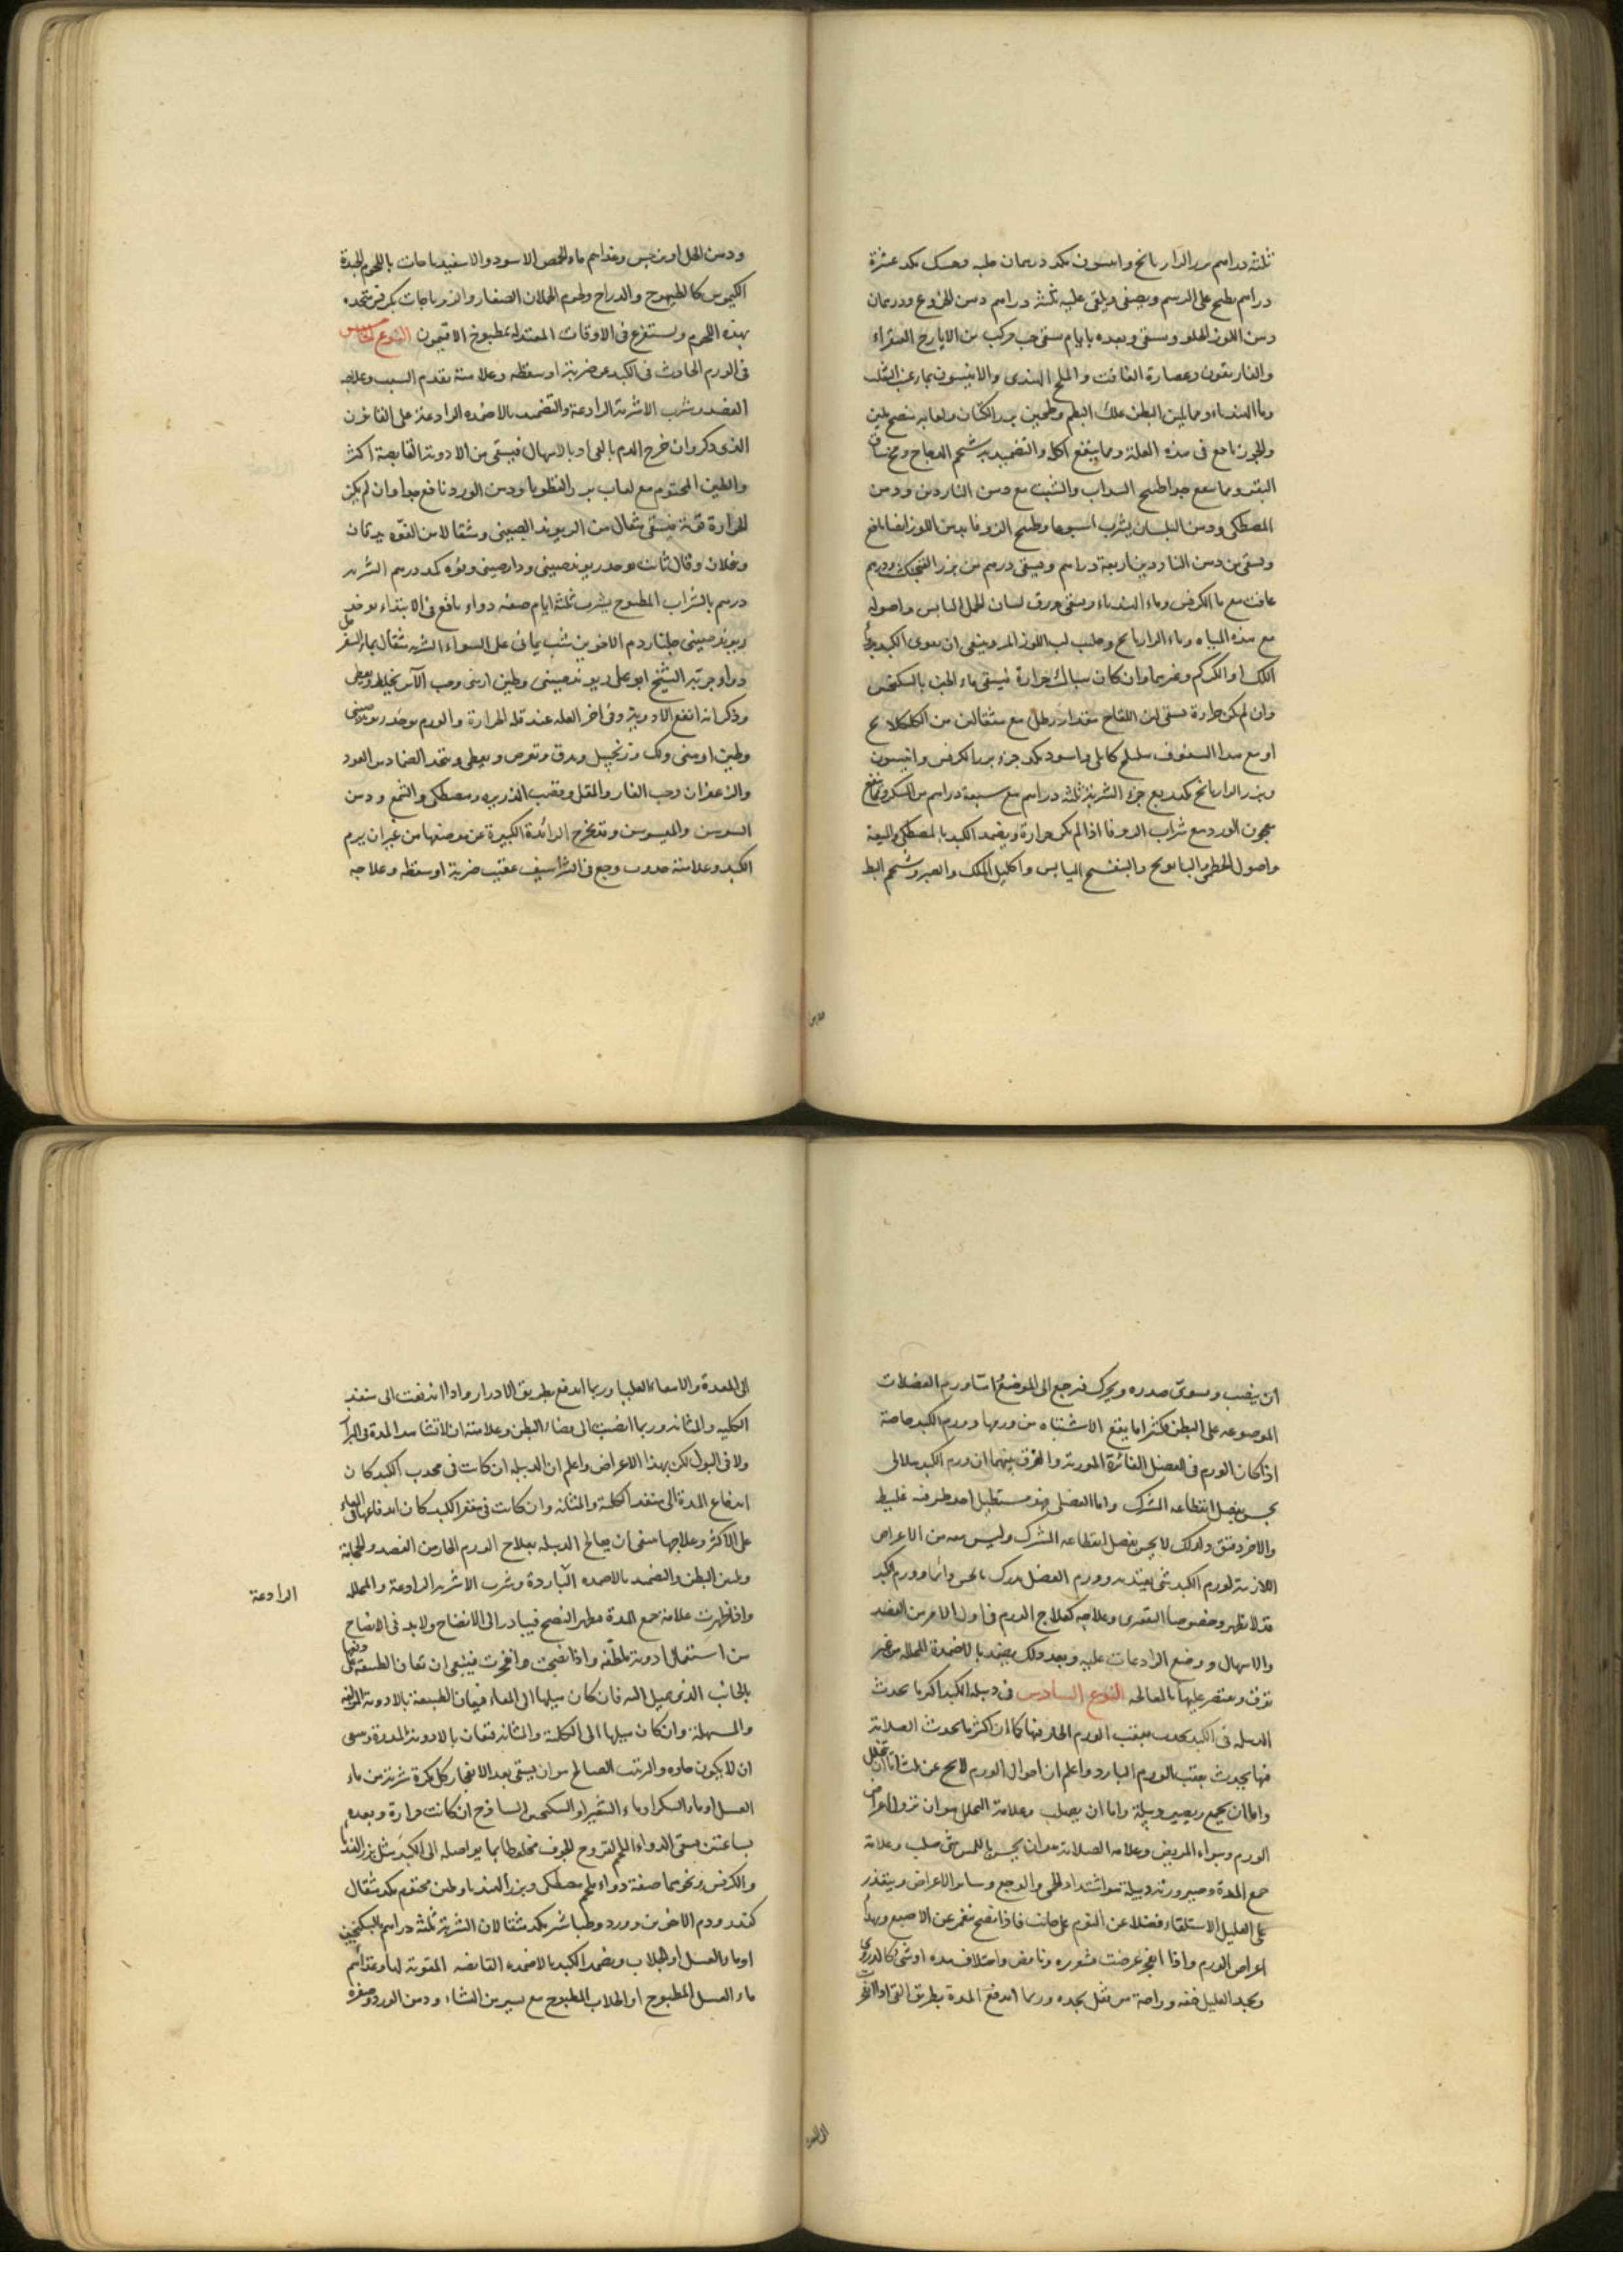 ثلثة دراهم بزر الرازيانج وانيسون مكد درهمان حلبه وحسك مكد عشرة
دراهم يطبخ على الرسم ويصفى ويلقى عليه ثلثة دراهم دهن الخروع ودرهمان
دهن اللوز الحلو ويسقى وبعده بايام يسقى حب مركب من الايارج الصفراء
والغاريقون وعصارة الغافت والملح الهندى والانيسون بماء عنب الثعلب
وماء الهندباء ومما يلين البطن علك البطم وطحين بزر الكتان ولعابه ينضج يلين
والجوز نافع فى هذه العلة ومما ينفع اكلا والتضميد به شحم الدجاج ومخ ساق
البقر ومما ينفع جدا طبيخ السداب والشبت مع دهن الناردين ودهن
المصطكى ودهن البلسان يشرب اسبوعا وطبيخ الزوفا بدهن اللوز ايضا نافع
ويسقى من دهن الناردين اربعة دراهم ويسقى درهم من بزر الفنجنكشت ودرهم
غافت مع ماء الكرفس وماء الهندباء ويسقى ورق لسان الحمل اليابس واصوله
مع هذه المياه وماء الرازيانج وحليب لب اللوز المر وينبغى ان يقوى الكبد
اللك او الكركم وغيرهما وان كان هناك حرارة فيسقى ماء الجبن بالسكنجبين
وان لم يكن حرارة يسقى لبن اللقاح مقدار رطل مع مثقالين من الكلكلانج
او مع هذا السفوف هليلج كابلى واسود مكد جزء بزر الكرفس وانيسون
وبزر الرازيانج مكد ربع جزء الشربة ثلثه دراهم مع سبعة دراهم من السكر وينفع
معجون الورد مع شراب الزوفا اذا لم يكن حرارة ويضمد الكبد بالمصطكى والميعة
واصول الخطمى والبابونج والبنفسج اليابس واكليل الملك والصبر وشحم البط
ودهن الخل او نرجس وغذاهم ماء الحمص الاسود والاسفيدباجات باللحوم الجيدة
الكيموس كالطيهوج والدراج ولحوم الحملان الصغار والزيرباجات بكرفس متخذه
بهذه اللحوم ويستفرغ فى الاوقات المعتدلة بمطبوخ الافتيمون النوع الخامس
فى الورم الحادث فى الكبد عن ضربة او سقطه وعلامته تقدم السبب وعلاجه
الفصد وشرب الاشربة الرادعة والتضميد بالاضمده الرادعة على القانون
الذى ذكر وان خرج الدم بالقى او بالاسهال فيسقى من الادوية القابضة اكثر
والطين المختوم مع لعاب بزر القطونا ودهن الورد نافع جدا وان لم يكن
الحرارة قوية فيسقى مثقال من الريوند الصينى ومثقالا من الفوه يدقان
وينخلان وقال ثابت يوخذ ريوند صينى ودارصينى وفوه مكد درهم الشربه
درهم بالشراب المطبوخ يشرب ثلثة ايام صفة دواء نافع فى الابتداء يوخذ
ريوند صينى جلنار دم الاخوين شب يمانى على السواء الشربه مثقال بماء السفرجل
دواء جربه الشيخ ابو على ريوند صينى وطين ارمنى وحب الآس يخلط ويعطى
وذكر انه انفع الادوية وفى اخر العله عند قلة الحرارة والورم يوخذ ريوند صينى
وطين ارمنى ولك وزنجبيل ويدق ويقرص ويعطى ويتخذ الضماد من العود
والزعفران وحب الغار والمقل وقصب الذريره ومصطكى والشمع ودهن
السوسن والميسوسن وقد يخرج الزائدة الكبيرة عن موضعها من غير ان يرم
الكبد وعلامته حدوث وجع فى الشراسيف عقيب ضربة او سقطه وعلاجه
علاجه
ان ينصب ويسوى صدره ويحرك فيرجع الى الموضع اما ورم العضلات
الموضوعه على البطن فكثيرا ما يقع الاشتباه من ورمها وورم الكبد خاصة
اذا كان الورم فى العضل الغائرة الموربة والفرق بينهما ان ورم الكبد هلالى
يحس بفصل انقطاعه المشترك واما العضلى فهو مستطيل احد طرفيه غليظ
والاخر دقيق ولذلك لا يحس بفصل انقطاعه المشترك وليس معه من الاعراض
اللازمة لورم الكبد شى يعتد به وورم العضل يدرك بالحس دائما وورم الكبد
قد لا يظهر وخصوصا المقعرى وعلاجه كعلاج الورم فى اول الامر من الفصد
والاسهال ووضع الرادعات عليه وبعد ذلك يضمد بالاضمدة المحلله من غير
توقف ويقتصر عليها بالمعالجه النوع السادس فى دبيلة الكبد اكثر ما يحدث
الدبيله فى الكبد يحدث بعقب الورم الحار فيها كما ان اكثر ما يحدث الصلابة
فيها يحدث بعقب الورم البارد واعلم ان احوال الورم لا يخ عن ثلث اما ان يتحلل
واما ان يجمع ويصير دبيلة واما ان يصلب وعلامة التحلل هو ان تزول اعراض
الورم ويبراء المريض وعلامه الصلابة هو ان يحس باللمس شى صلب وعلامة
جمع المدة وصيرورته دبيلة هو اشتداد الحمى والوجع وسائر الاعراض ويتعذر
على العليل الاستلقاء فضلا عن النوم على جانب فاذا نضج تغمز عن الاصبع ويهدأ
اعراض الورم واذا انفجر عرضت قشعريره ونافض واختلاف مده او شى كالدردى
ويجد العليل خفه وراحة من ثقل يجده وربما اندفع المدة بطريق القى اذا انفجرت
الى المعدة
الى المعدة والامعاء العليا وربما اندفع بطريق الادرار واذا اندفعت الى منفذ
الكليه والمثانه وربما انصب الى فضاء البطن وعلامته ان لا تشاهد المدة فى البراز
ولا فى البول لكن بهذا الاعراض واعلم ان الدبيله ان كانت فى محدب الكبد كان
اندفاع المدة الى منفذ الكلية والمثانه وان كانت فى مقعر الكبد كان اندفاعها فى المعاء
على الاكثر وعلاجها ينبغى ان يعالج الدبيله بعلاج الورم الحار من الفصد والحجامة
وتليين البطن والتضميد بالاضمده الباردة وشرب الاشربه الرادعة والمحلله
الرادعة
واذا ظهرت علامة جمع المدة وظهر النضج فيبادر الى الانضاج ولابد فى الانضاج
من استعمال ادوية ملطفه واذا نضجت وانفجرت فينبغى ان تعان الطبيعة على دفعها
بالجانب الذى يميل اليه فان كان ميلها الى المعاء فيعان الطبيعة بالادوية المزلقه
والمسهلة وان كان ميلها الى الكلية والمثانه فتعان بالادوية المدرة وينبغى
ان لا يكون حاده والترتيب الصالح هو ان يسقى بعد الانفجار كل بكرة شربة من ماء
العسل او ماء السكر او ماء الشعير او السكنجبين الساذج ان كانت حرارة وبعده
بساعتين يسقى الدواء الملحم لقروح الجوف مخلوطا بما يواصله الى الكبد مثل بزر الهندبا
والكرفس ونحوهما صفة دواء ملحم مصطكى وبزر الهندبا وطين مختوم مكد مثقال
كندر ودم الاخوين وورد وطباشير مكد مثقالان الشربة ثلثة دراهم بالسكنجبين
او ماء العسل او الجلاب ويضمد الكبد بالاضمده القابضه المقوية لها وغذائهم
ماء العسل المطبوخ او الجلاب المطبوخ مع يسير من النشاء ودهن الورد وصفرة